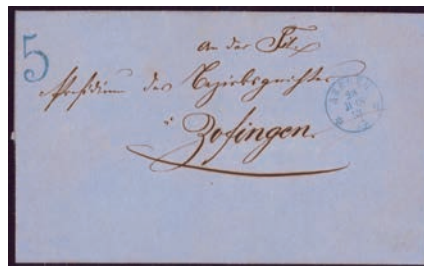 5
An das Tit.
Præsidium des Bezirksgerichtes
Zofingen.